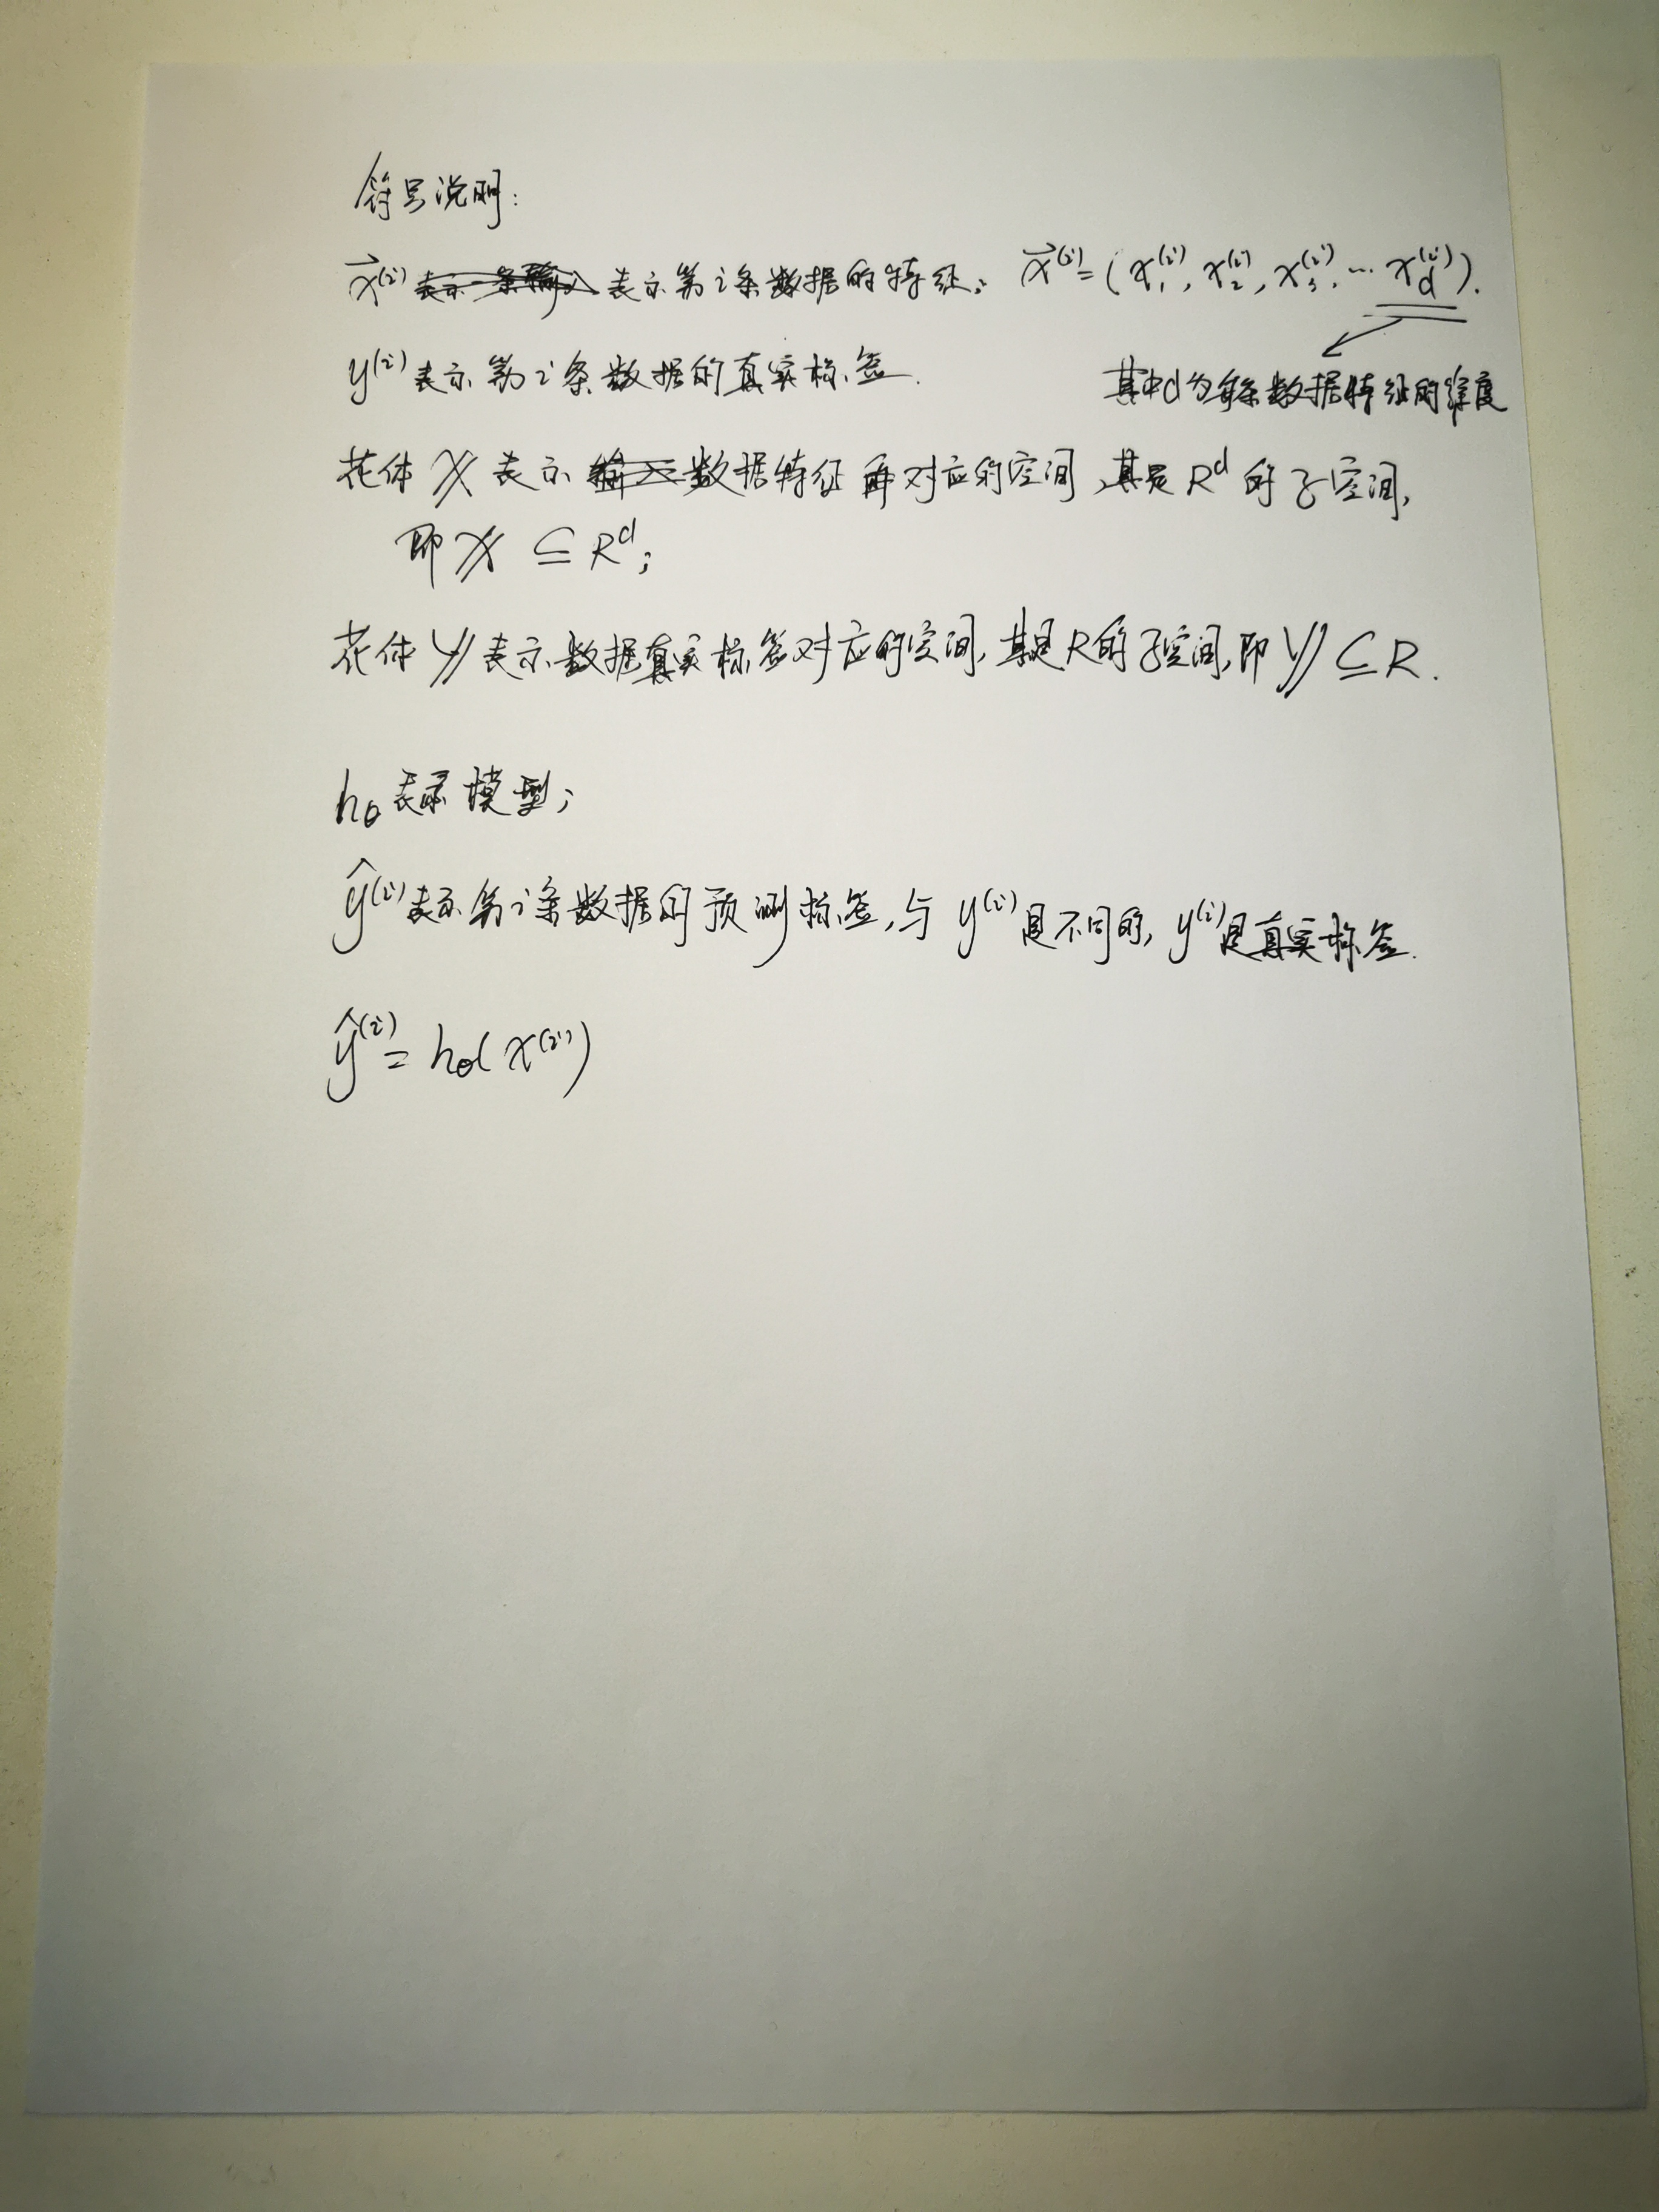 符号说明：
x⃗⁽ⁱ⁾ 表示第i条数据的特征； x⃗⁽ⁱ⁾=(x₁⁽ⁱ⁾, x₂⁽ⁱ⁾, x₃⁽ⁱ⁾, … x_d⁽ⁱ⁾).
y⁽ⁱ⁾表示第i条数据的真实标签.
其中d为每条数据特征的维度
花体 𝒳 表示 数据特征 对应的空间,其是 Rᵈ 的子空间,
即 𝒳 ⊆ Rᵈ;
花体 𝒴 表示数据真实标签对应的空间,其是R的子空间,即 𝒴 ⊆ R.
h_θ 表示模型;
ŷ⁽ⁱ⁾表示第i条数据的预测标签,与 y⁽ⁱ⁾是不同的, y⁽ⁱ⁾是真实标签.
ŷ⁽ⁱ⁾= h_θ(x⁽ⁱ⁾)